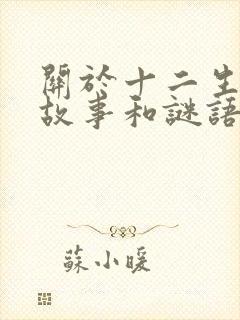 關於十二生
故事和謎語
蘇小暖